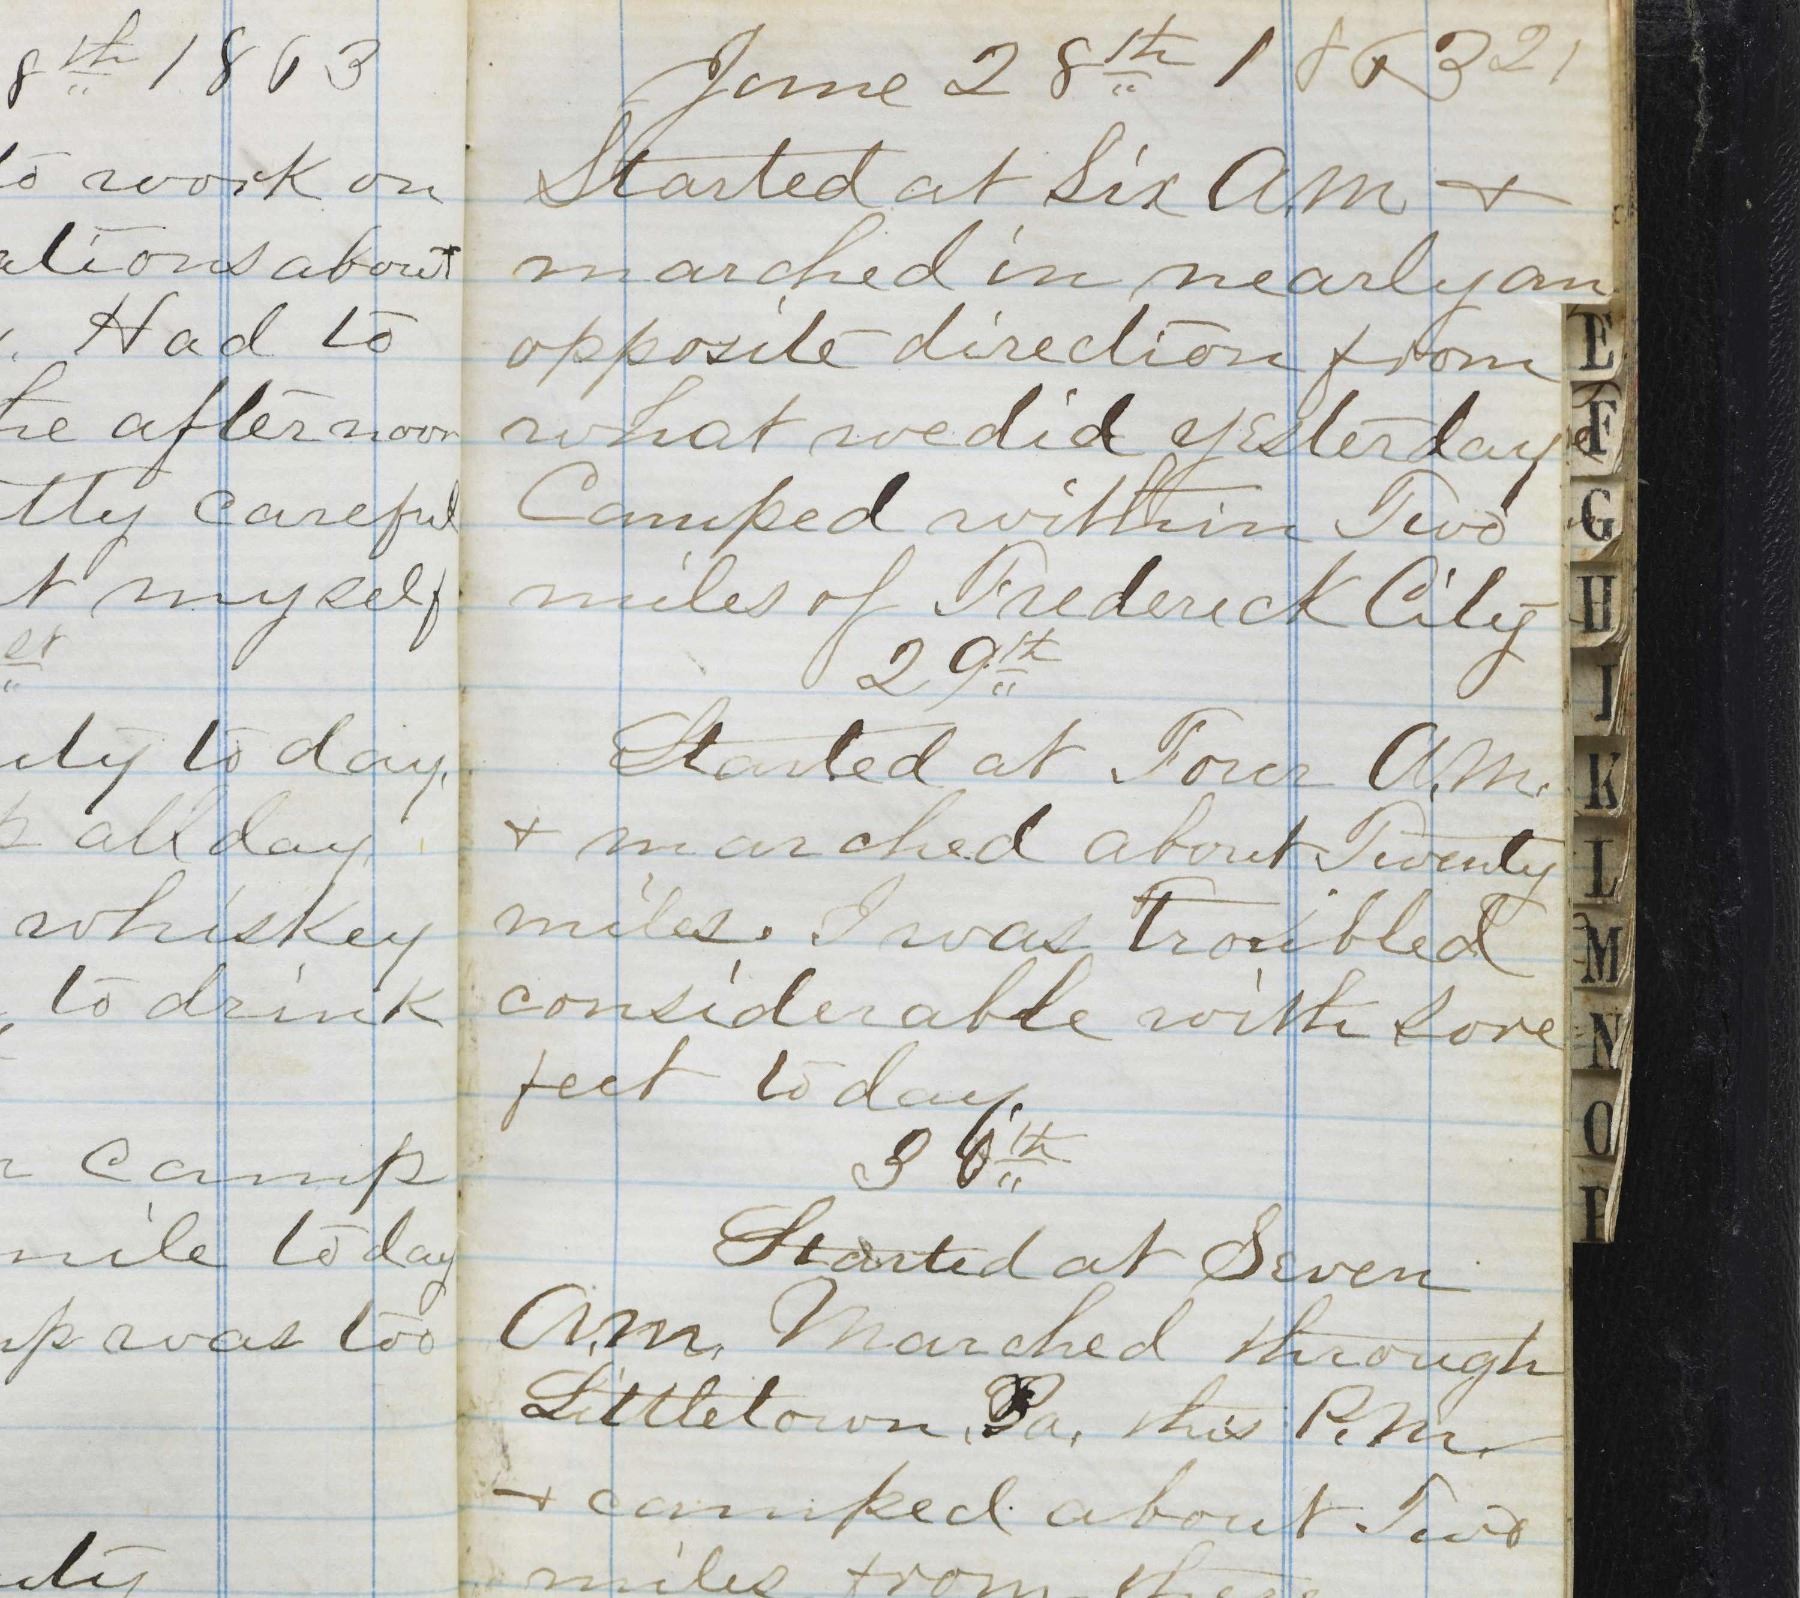 8th 1863
to work on
ations about
Had to
he afternoon
tty careful
t myself
st
uty to day.
p all day
whiskey
to drink
camp
mile to day
mp was too
uty
June 28th 1863 21
Started at Six A.M. +
marched in nearly an
opposite direction from
what we did yesterday
Camped withtin Two
miles of Frederick City
29th
Started at Four A.M.
+ marched about Twenty
miles. I was Troubled
considerable with sore
feet to day.
30th
Started at Seven
A.M. Marched through
Littletown, Pa, this P.M.
+ camped about Two
miles from there
E
F
G
H
I
K
L
M
N
O
P